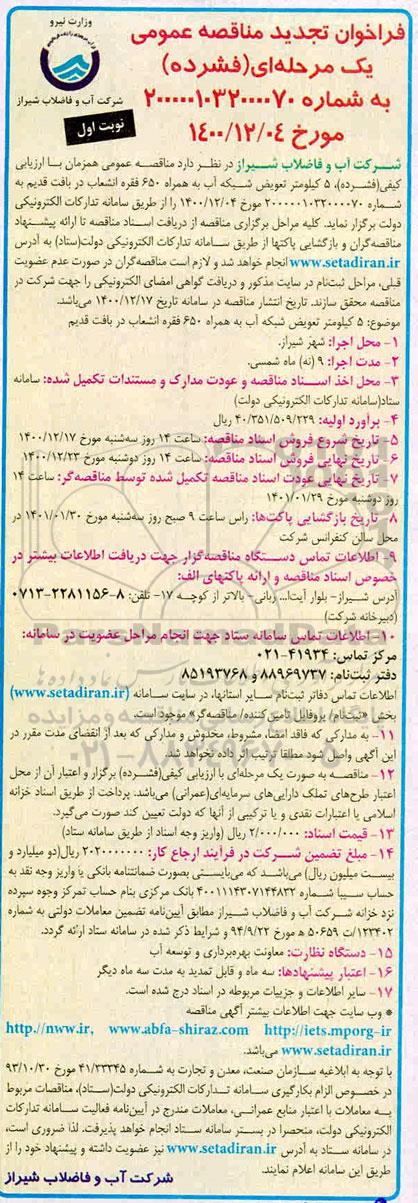 وزارت نیرو
شرکت آب و فاضلاب شیراز
نوبت اول
فراخوان تجدید مناقصه عمومی
یک مرحله‌ای(فشرده)
به شماره ۲۰۰۰۰۰۱۰۳۲۰۰۰۰۷۰
مورخ ۱۴۰۰/۱۲/۰۴
شرکت آب و فاضلاب شیراز در نظر دارد مناقصه عمومی همزمان با ارزیابی
کیفی(فشرده)، ۵ کیلومتر تعویض شبکه آب به همراه ۶۵۰ فقره انشعاب در بافت قدیم به
شماره ۲۰۰۰۰۰۱۰۳۲۰۰۰۰۷۰ مورخ ۱۴۰۰/۱۲/۰۴ را از طریق سامانه تدارکات الکترونیکی
دولت برگزار نماید. کلیه مراحل برگزاری مناقصه از دریافت اسناد مناقصه تا ارائه پیشنهاد
مناقصه‌گران و بازگشایی پاکتها از طریق سامانه تدارکات الکترونیکی دولت(ستاد) به آدرس
www.setadiran.ir انجام خواهد شد و لازم است مناقصه‌گران در صورت عدم عضویت
قبلی، مراحل ثبت‌نام در سایت مذکور و دریافت گواهی امضای الکترونیکی را جهت شرکت در
مناقصه محقق سازند. تاریخ انتشار مناقصه در سامانه تاریخ ۱۴۰۰/۱۲/۱۷ می‌باشد.
موضوع: ۵ کیلومتر تعویض شبکه آب به همراه ۶۵۰ فقره انشعاب در بافت قدیم
۱- محل اجرا: شهر شیراز.
۲- مدت اجرا: ۹ (نه) ماه شمسی.
۳- محل اخذ اسناد مناقصه و عودت مدارک و مستندات تکمیل شده: سامانه
ستاد(سامانه تدارکات الکترونیکی دولت)
۴- برآورد اولیه: ۴۰/۳۵۱/۵۰۹/۲۲۹ ریال
۵- تاریخ شروع فروش اسناد مناقصه: ساعت ۱۴ روز سه‌شنبه مورخ ۱۴۰۰/۱۲/۱۷
۶- تاریخ نهایی فروش اسناد مناقصه: ساعت ۱۴ روز دوشنبه مورخ ۱۴۰۰/۱۲/۲۳
۷- تاریخ نهایی عودت اسناد مناقصه تکمیل شده توسط مناقصه‌گر: ساعت ۱۴
روز دوشنبه مورخ ۱۴۰۱/۰۱/۲۹
۸- تاریخ بازگشایی پاکت‌ها: راس ساعت ۹ صبح روز سه‌شنبه مورخ ۱۴۰۱/۰۱/۳۰ در
محل سالن کنفرانس شرکت
۹- اطلاعات تماس دستگاه مناقصه‌گزار جهت دریافت اطلاعات بیشتر در
خصوص اسناد مناقصه و ارائه پاکتهای الف:
آدرس شیراز- بلوار آیت‌ا... ربانی- بالاتر از کوچه ۱۷- تلفن: ۸-۲۲۸۱۱۵۶-۰۷۱۳
(دبیرخانه شرکت)
۱۰- اطلاعات تماس سامانه ستاد جهت انجام مراحل عضویت در سامانه:
مرکز تماس: ۴۱۹۳۴-۰۲۱
دفتر ثبت‌نام: ۸۸۹۶۹۷۳۷ و ۸۵۱۹۳۷۶۸
اطلاعات تماس دفاتر ثبت‌نام سایر استانها، در سایت سامانه (www.setadiran.ir)
بخش «ثبت‌نام/ پروفایل تامین‌کننده/ مناقصه‌گر» موجود است.
۱۱- به مدارکی که فاقد امضا، مشروط، مخدوش و مدارکی که بعد از انقضای مدت مقرر در
این آگهی واصل شود مطلقا ترتیب اثر داده نخواهد شد.
۱۲- مناقصه به صورت یک مرحله‌ای با ارزیابی کیفی(فشرده) برگزار و اعتبار آن از محل
اعتبار طرح‌های تملک دارایی‌های سرمایه‌ای(عمرانی) می‌باشد. پرداخت از طریق اسناد خزانه
اسلامی یا اعتبارات نقدی و یا ترکیبی از آنها که دولت تعیین کند صورت می‌گیرد.
۱۳- قیمت اسناد: ۲/۰۰۰/۰۰۰ ریال (واریز وجه اسناد از طریق سامانه ستاد)
۱۴- مبلغ تضمین شرکت در فرآیند ارجاع کار: ۲۰۲۰۰۰۰۰۰۰ ریال(دو میلیارد و
بیست میلیون ریال) می‌باشد که می‌بایستی بصورت ضمانتنامه بانکی یا واریز وجه نقد به
حساب سیبا شماره ۴۰۰۱۱۱۴۳۰۷۱۴۴۸۳۲ بانک مرکزی بنام حساب تمرکز وجوه سپرده
نزد خزانه شرکت آب و فاضلاب شیراز مطابق آیین‌نامه تضمین معاملات دولتی به شماره
۱۲۳۴۰۲/ت ۵۰۶۵۹ ه مورخ ۹۴/۹/۲۲ و شرایط ذکر شده در سامانه ستاد ارائه گردد.
۱۵- دستگاه نظارت: معاونت بهره‌برداری و توسعه آب
۱۶- اعتبار پیشنهادها: سه ماه و قابل تمدید به مدت سه ماه دیگر
۱۷- سایر اطلاعات و جزییات مربوطه در اسناد درج شده است.
* وب سایت جهت اطلاعات بیشتر آگهی مناقصه
http://nww.ir, www.abfa-shiraz.com http://iets.mporg-ir
www.setadiran.ir می‌باشد.
با توجه به ابلاغیه سازمان صنعت، معدن و تجارت به شماره ۴۱/۲۳۳۴۵ مورخ ۹۳/۱۰/۳۰
در خصوص الزام بکارگیری سامانه تدارکات الکترونیکی دولت(ستاد)، مناقصات مربوط
به معاملات با اعتبار منابع عمرانی، معاملات مندرج در آیین‌نامه فعالیت سامانه تدارکات
الکترونیکی دولت، منحصرا در بستر سامانه ستاد انجام خواهد پذیرفت. لذا ضروری است،
در سامانه ستاد به آدرس www.setadiran.ir نیز عضویت داشته و پیشنهاد خود را از
طریق این سامانه اعلام نمایند.
شرکت آب و فاضلاب شیراز